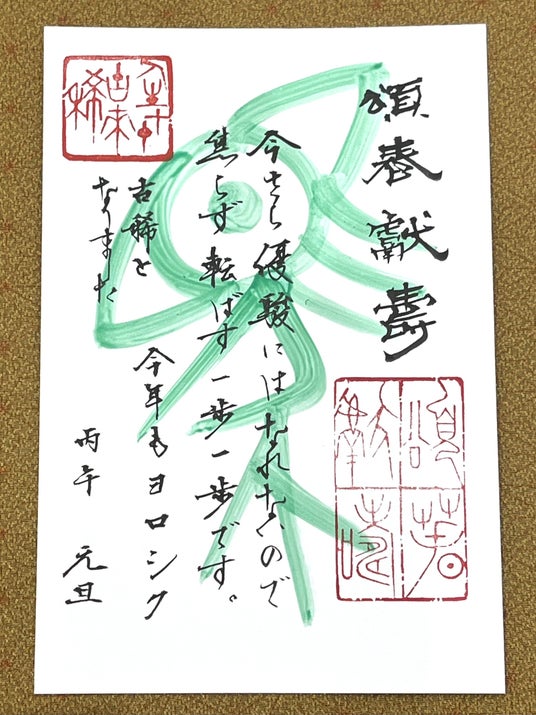 頌春獻壽
今さら優駿にはなれないので
焦らず転ばず一歩一歩です。
古稀と
なりました
今年もヨロシク
丙午 元旦
頌春
獻壽